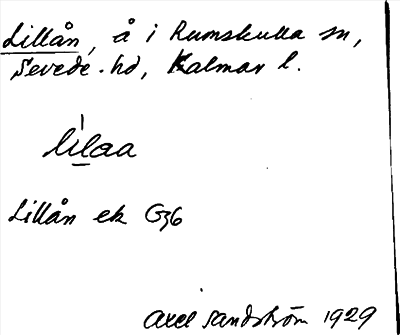 Lillån, å i Rumskulla sn,
Sevede hd, Kalmar l.
lilaa
Lillån ek G36
Axel Sandström 1929